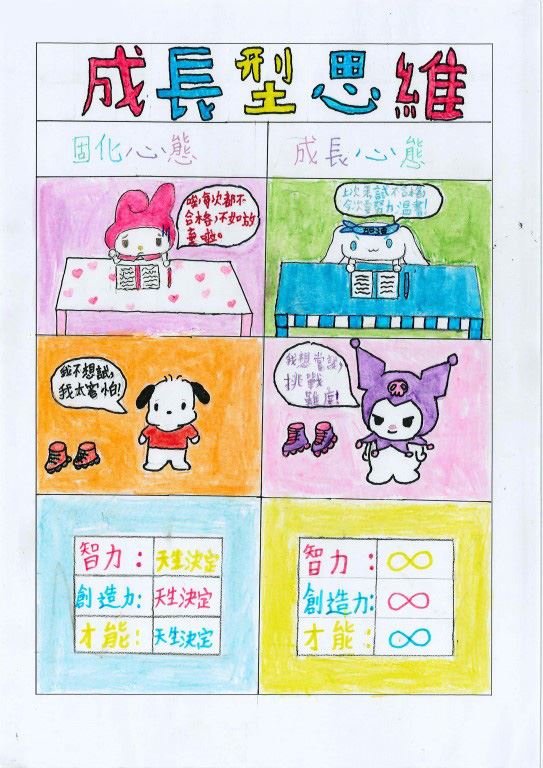 成長型思維
固化心態
成長心態
唉,每次都不
合格,不如放
棄啦。
上次考試不合格,
今次要努力溫書!
我不想試,
我太害怕!
我想嘗試,
挑戰
難度!
智力: 天生決定
創造力: 天生決定
才能: 天生決定
智力: ∞
創造力: ∞
才能: ∞